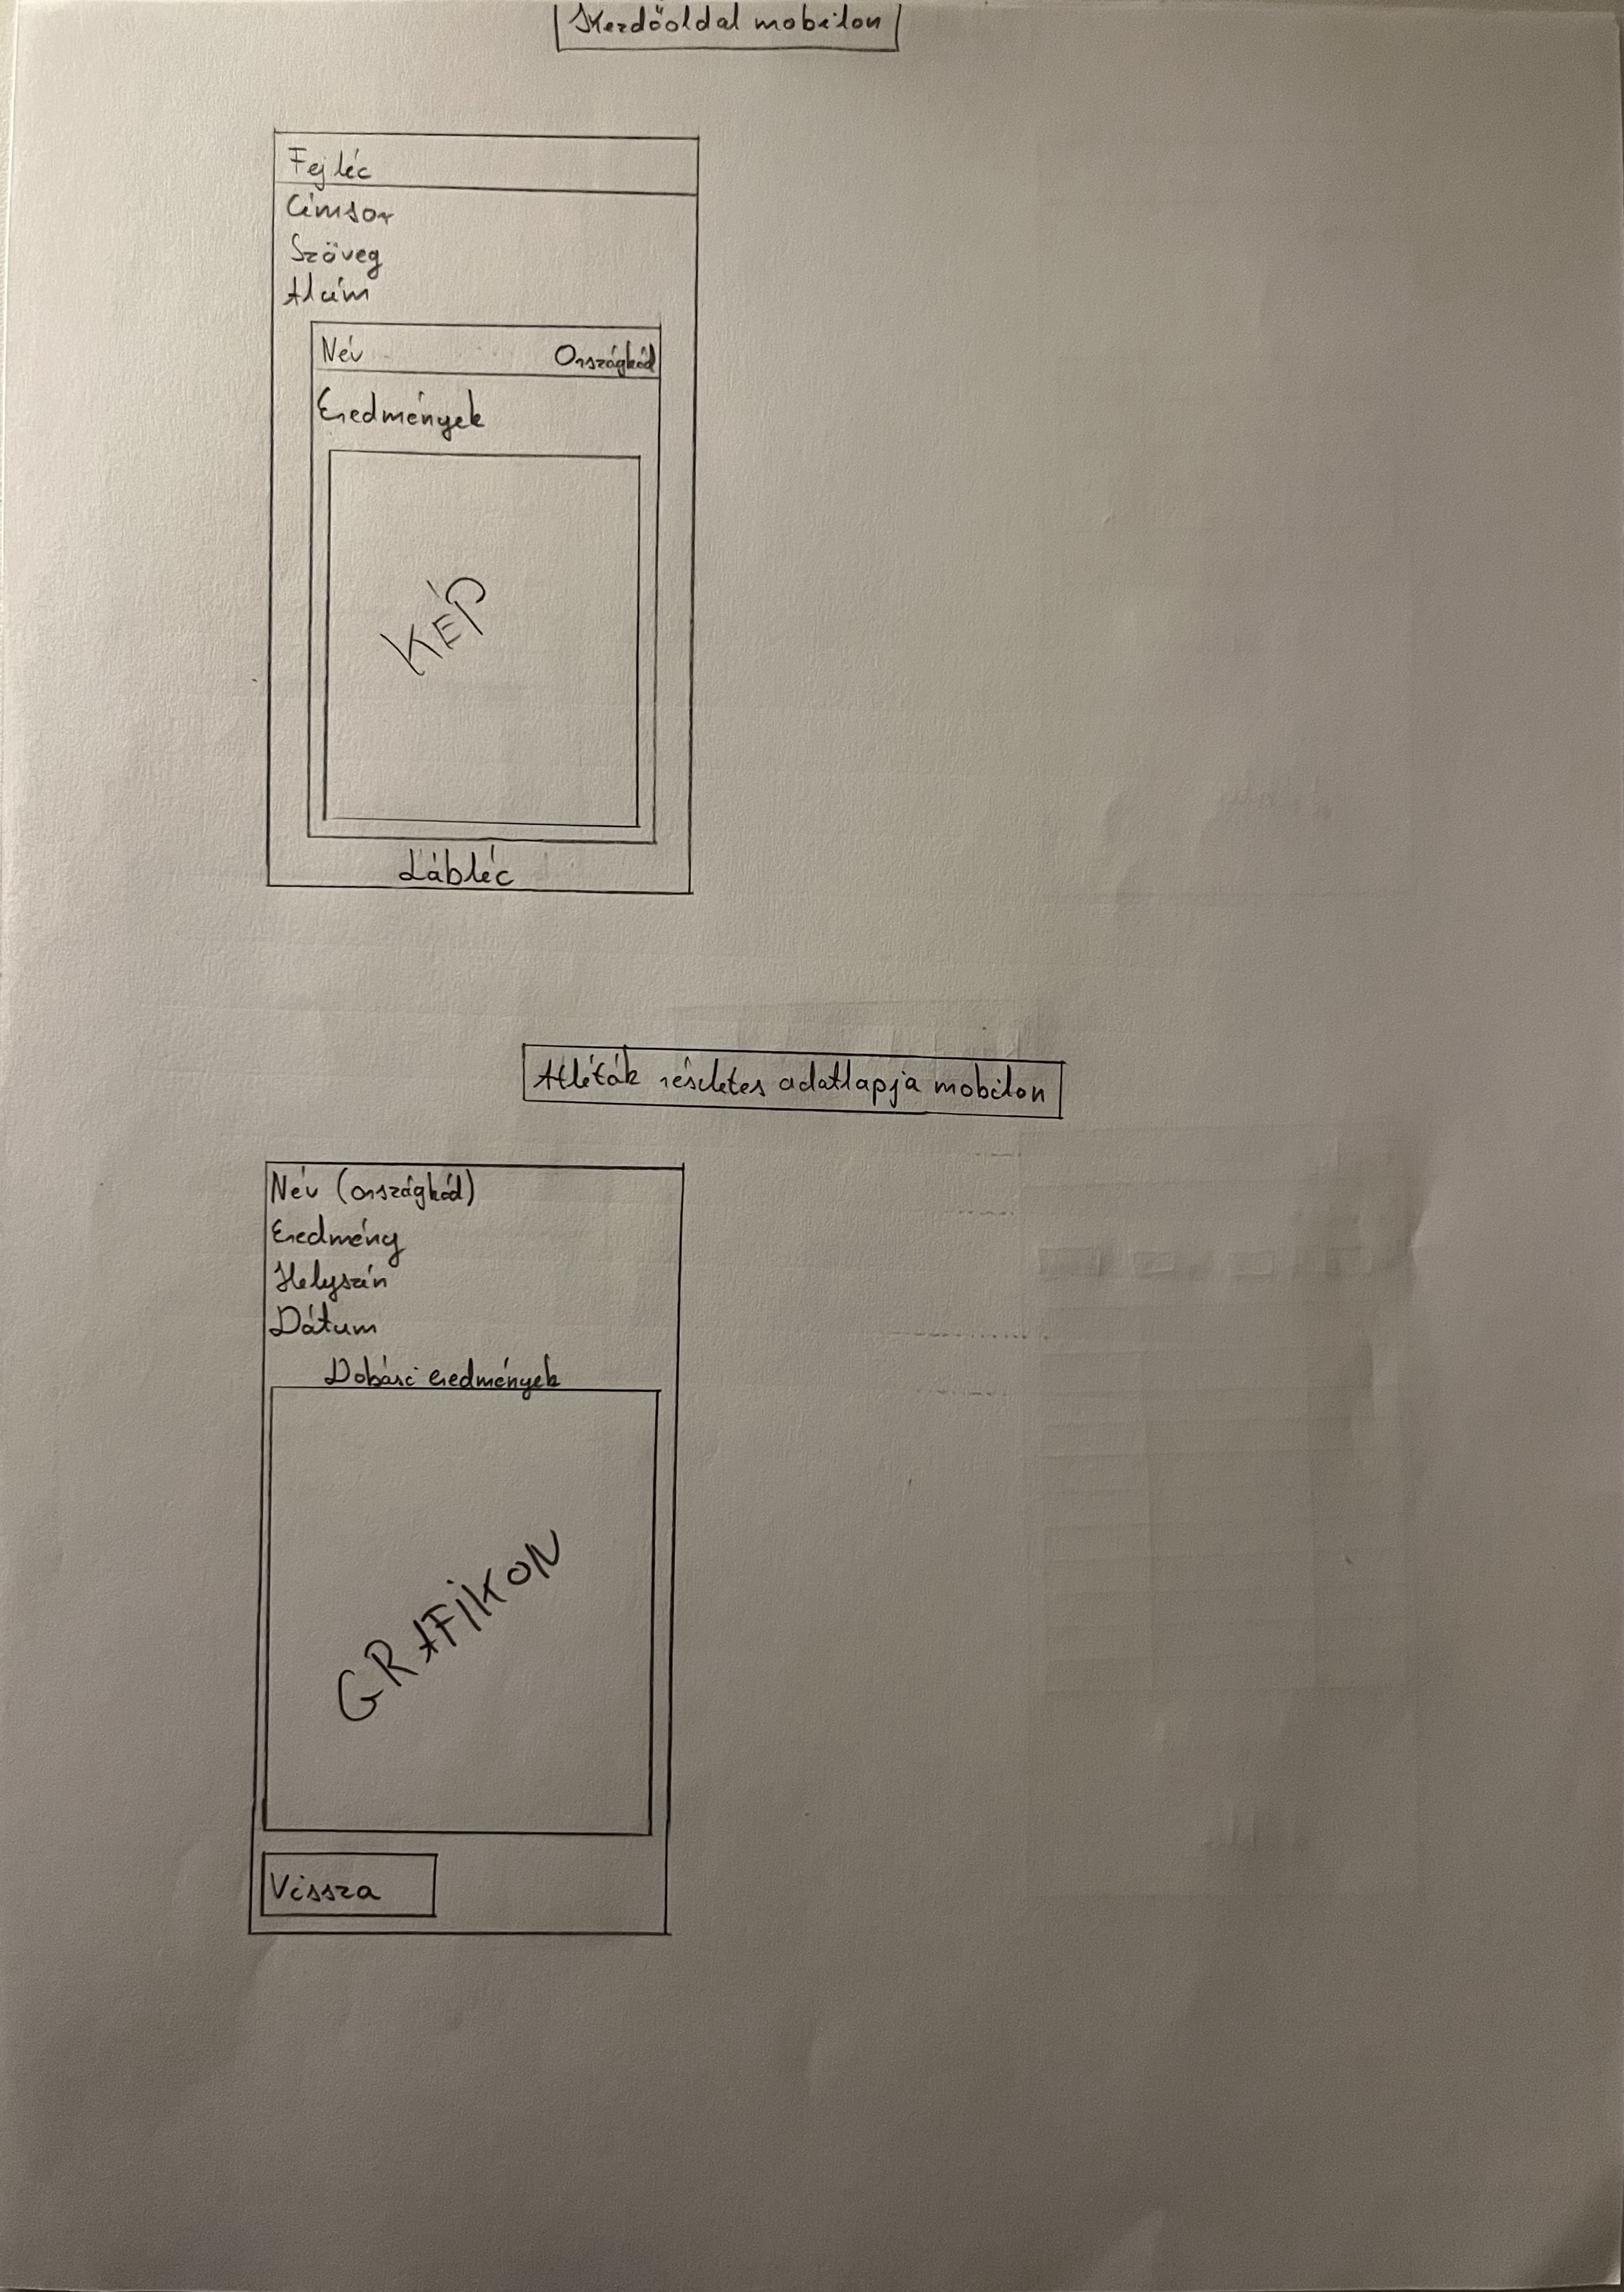 Kezdőoldal mobilon
Fejléc
Címsor
Szöveg
Alcím
Név Országkód
Eredmények
KÉP
Lábléc
Atléták részletes adatlapja mobilon
Név (országkód)
Eredmény
Helyszín
Dátum
Dobási eredmények
GRAFIKON
Vissza